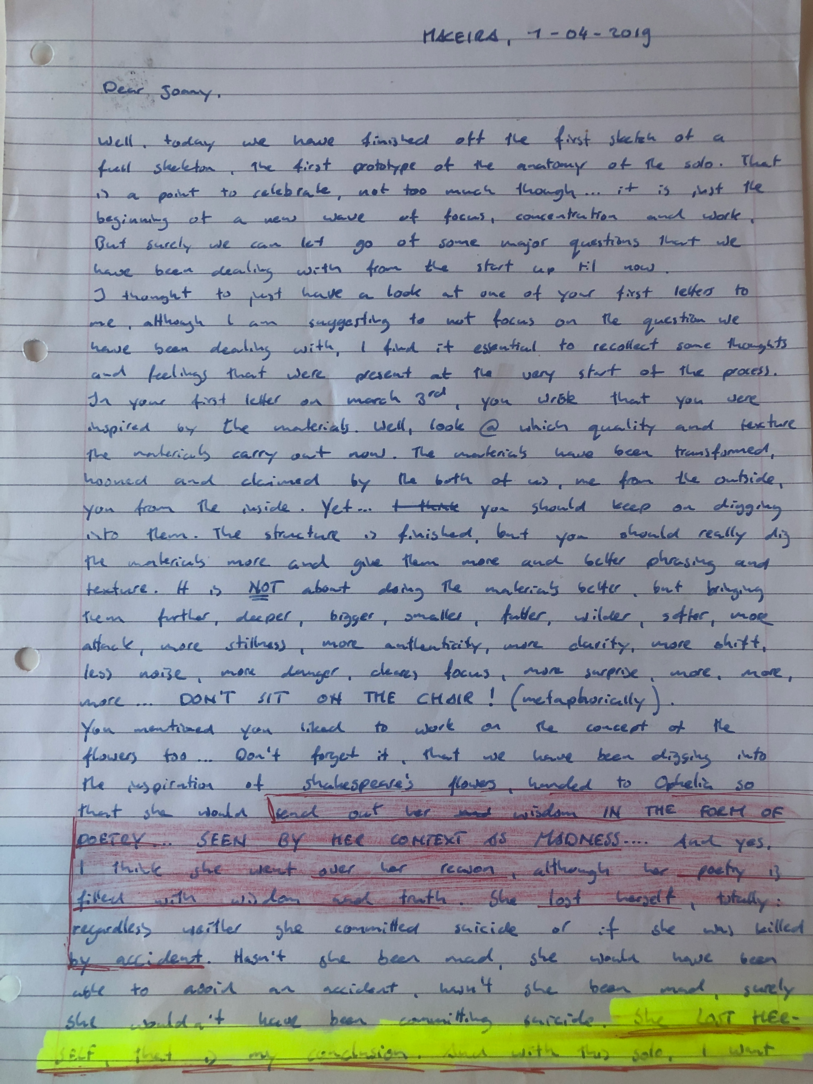 MACEIRA, 1-04-2019
Dear Jonny.
Well, today we have finished off the first sketch of a
full skeleton, the first prototype of the anatomy of the solo. That
is a point to celebrate, not too much though... it is just the
beginning of a new wave of focus, concentration and work.
But surely we can let go of some major questions that we
have been dealing with from the start up til now.
I thought to just have a look at one of your first letters to
me, although I am suggesting to not focus on the question we
have been dealing with, I find it essential to recollect some thoughts
and feelings that were present at the very start of the process.
In your first letter on march 3rd, you wrote that you were
inspired by the materials. Well, look @ which quality and texture
the materials carry out now. The materials have been transformed,
and claimed by the both of us, me from the outside,
you from the inside. Yet... I think you should keep on digging
into them. The structure is finished, but you should really dig
the materials more and give them more and better phrasing and
texture. It is NOT about doing the materials better, but bringing
them further, deeper, bigger, smaller, fuller, wilder, softer, more
attack, more stillness, more authenticity, more clarity, more shift,
less noise, more danger, clearer focus, more surprise, more, more,
more... DON'T SIT ON THE CHAIR! (metaphorically).
You mentioned you liked to work on the concept of the
flowers too... Don't forget it, that we have been digging into
the inspiration of Shakespeare's flowers, handed to Ophelia so
that she would send out her wisdom IN THE FORM OF
POETRY... SEEN BY HER CONTEXT AS MADNESS.... And yes,
I think she went over her reason, although her poetry is
filled with wisdom and truth. She lost herself, totally:
regardless wether she committed suicide or if she was killed
by accident. Hasn't she been mad, she would have been
able to avoid an accident, hasn't she been mad, surely
she wouldn't have been committing suicide. She LOST HER-
SELF, that is my conclusion. And with this solo, I want